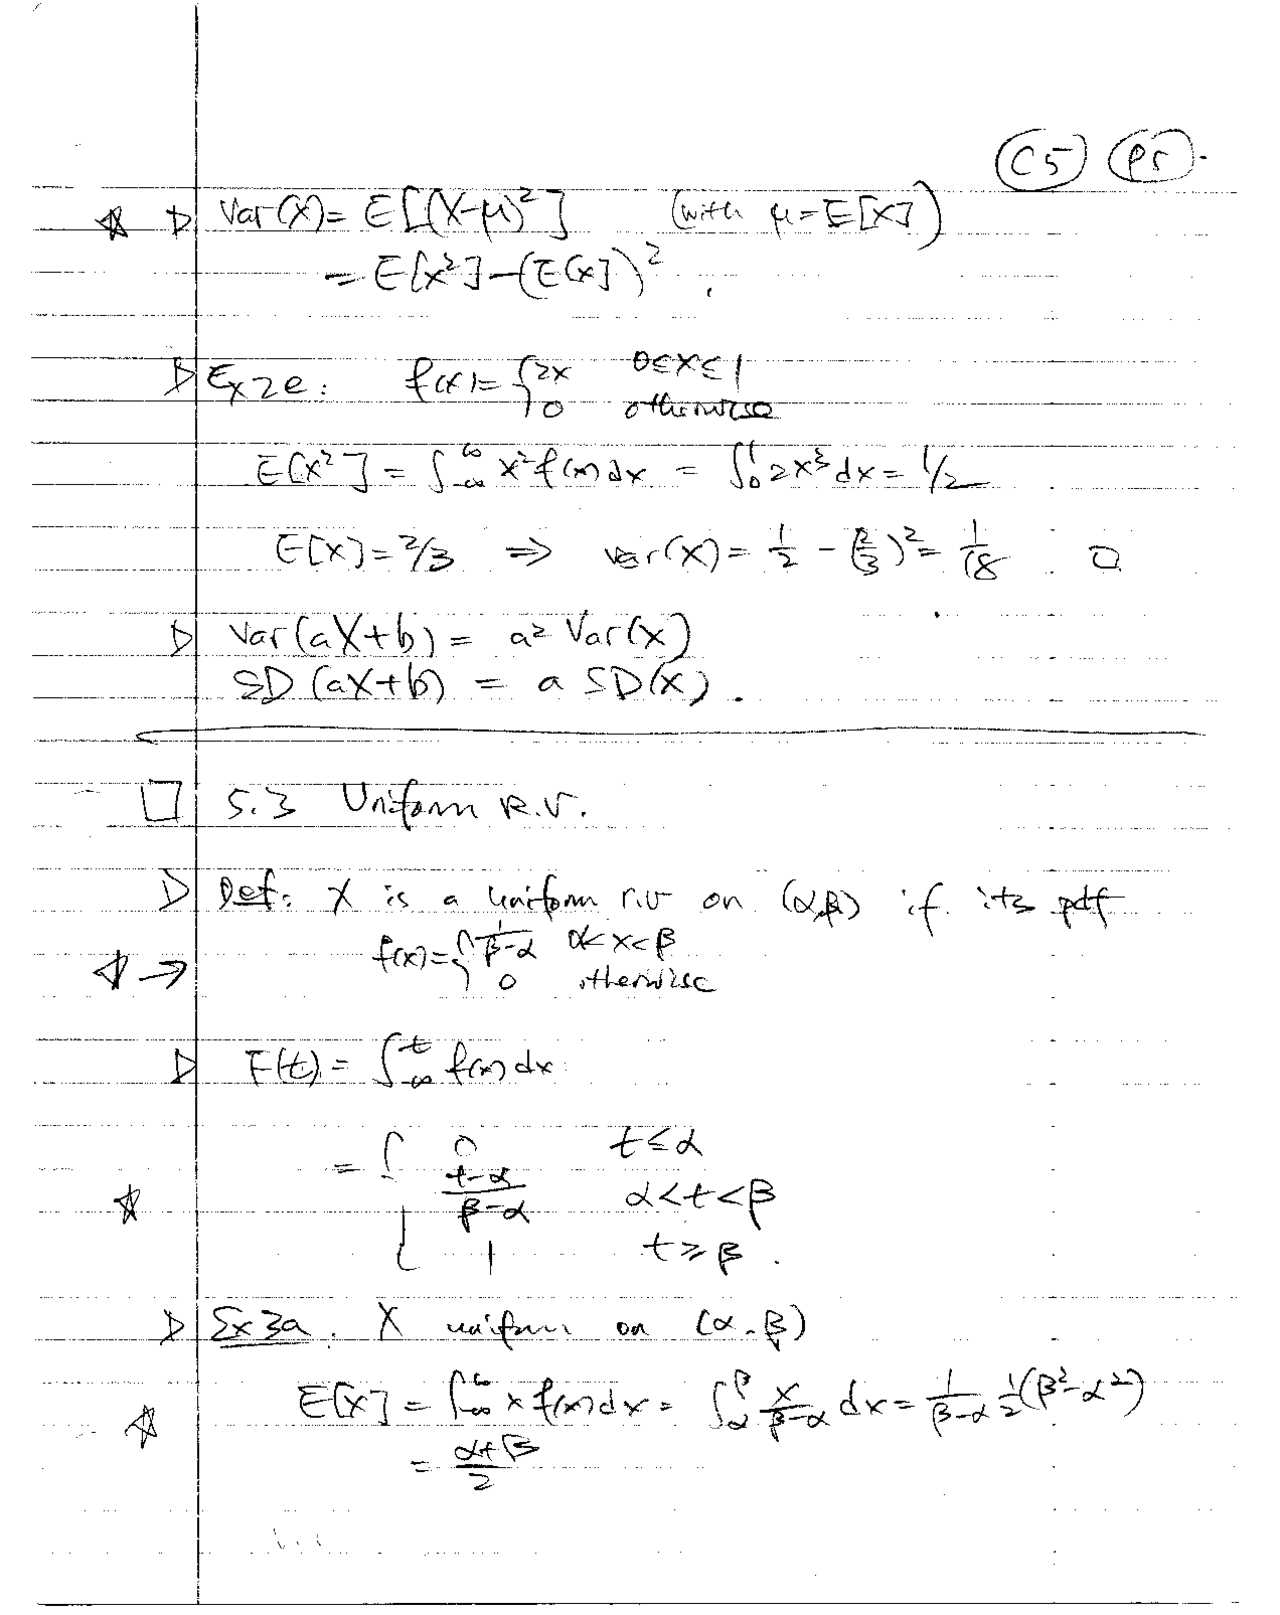 C5 P5.
☆ ▷ Var(X) = E[(X-μ)²] (with μ = E[X])
= E[X²] - (E[X])².
▷ Ex 2e: f(x) = { 2x 0≤x≤1
0 otherwise
E[X²] = ∫_{-∞}^{∞} x² f(x) dx = ∫_0^1 2x³ dx = 1/2
E[X] = 2/3 ⇒ var(X) = 1/2 - (2/3)² = 1/18 □
▷ Var(aX+b) = a² Var(X)
SD(aX+b) = a SD(X).
□ 5.3 Uniform R.V.
▷ Def: X is a uniform r.v on (α,β) if its pdf
☆ → f(x) = { 1/(β-α) α<x<β
0 otherwise
▷ F(t) = ∫_{-∞}^{t} f(x) dx
= { 0 t≤α
☆ (t-α)/(β-α) α<t<β
1 t≥β.
▷ Ex 3a. X uniform on (α,β)
☆ E[X] = ∫_{-∞}^{∞} x f(x) dx = ∫_α^β x/(β-α) dx = 1/(β-α) 1/2 (β²-α²)
= (α+β)/2